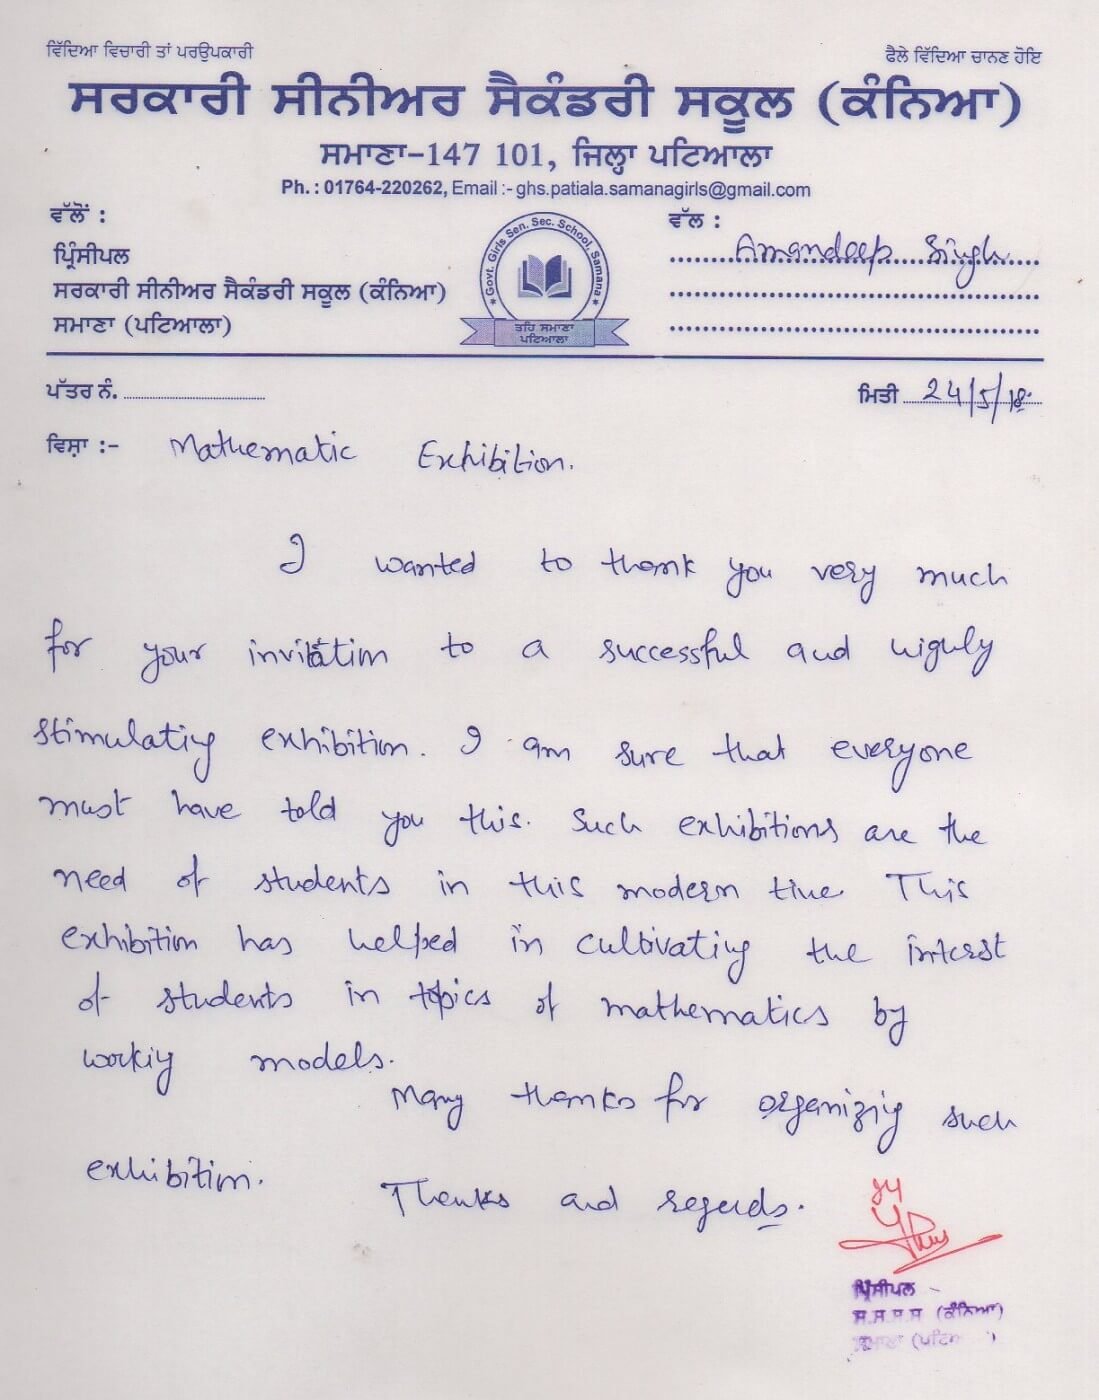 ਵਿੱਦਿਆ ਵਿਚਾਰੀ ਤਾਂ ਪਰਉਪਕਾਰੀ
ਫੈਲੇ ਵਿੱਦਿਆ ਚਾਨਣ ਹੋਇ
ਸਰਕਾਰੀ ਸੀਨੀਅਰ ਸੈਕੰਡਰੀ ਸਕੂਲ (ਕੰਨਿਆ)
ਸਮਾਣਾ-147 101, ਜਿਲ੍ਹਾ ਪਟਿਆਲਾ
Ph. : 01764-220262, Email :- ghs.patiala.samanagirls@gmail.com
ਵੱਲੋਂ :
ਪ੍ਰਿੰਸੀਪਲ
ਸਰਕਾਰੀ ਸੀਨੀਅਰ ਸੈਕੰਡਰੀ ਸਕੂਲ (ਕੰਨਿਆ)
ਸਮਾਣਾ (ਪਟਿਆਲਾ)
Govt. Girls Sen. Sec. School, Samana
ਤਹਿ ਸਮਾਣਾ
ਪਟਿਆਲਾ
ਵੱਲ :
Amandeep Singh
ਪੱਤਰ ਨੰ.
ਮਿਤੀ 24/5/18
ਵਿਸ਼ਾ :- Mathematic Exhibition.
I wanted to thank you very much
for your invitation to a successful and highly
stimulating exhibition. I am sure that everyone
must have told you this. Such exhibitions are the
need of students in this modern time This
exhibition has helped in cultivating the interst
of students in topics of mathematics by
working models.
Many thanks for organizing such
exhibition.
Thanks and regards.
ਪ੍ਰਿੰਸੀਪਲ
ਸ.ਸ.ਸ.ਸ (ਕੰਨਿਆ)
ਸਮਾਣਾ